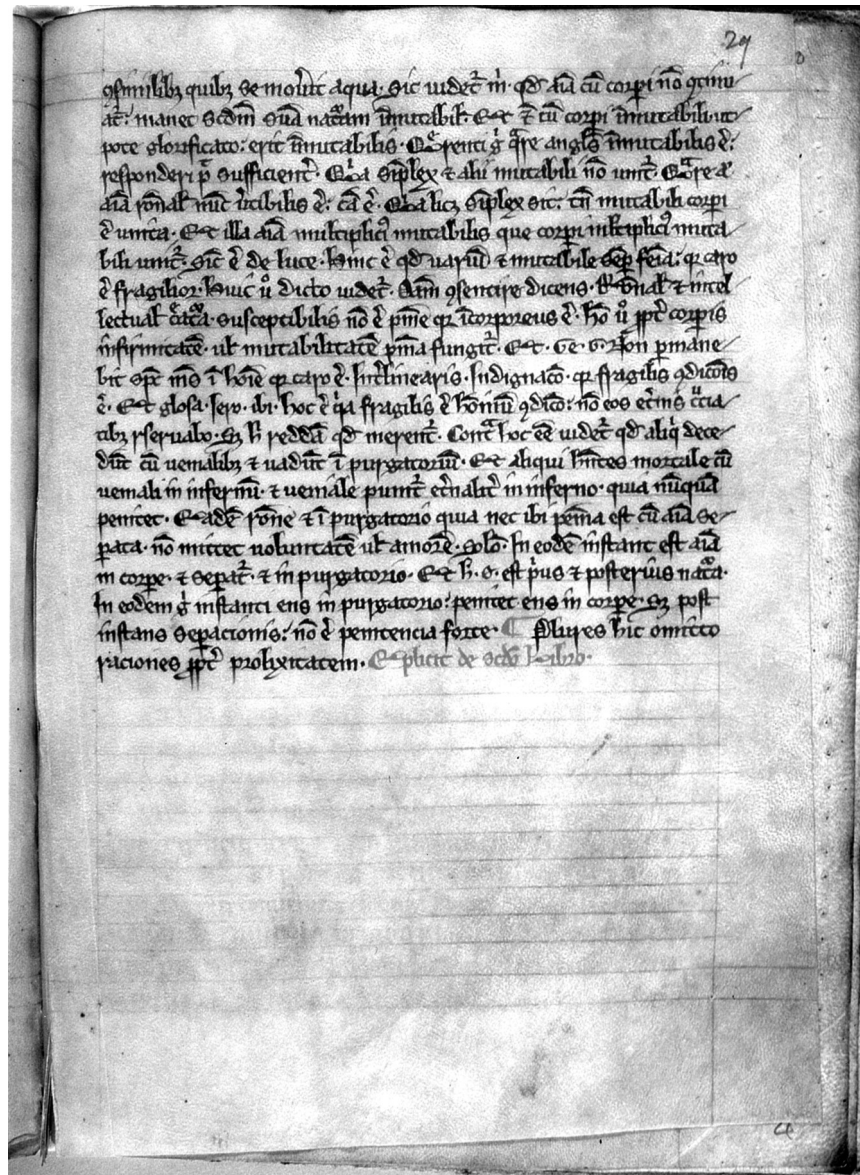 29
ꝯsimilibꝫ quibꝫ se mouit aqua. Sic uidet᷑ m̄. qđ aīa cū corpī nō ꝯtinu
at᷑: manet scđm suā nat̄am īmutabil̄. Et cū corpī īmutabili ut
pote glorificato: erit īmutabilis. Querenti ḡ q̄re angl̄s īmutabilis ē:
responderi p̄t sufficient᷑. Quia simplex ⁊ alii mutabili nō unit᷑. Quare
aīa rōnal̄ nūc ē: cā ē. Quia licꝫ simplex sit: tn̄ mutabili corpī
ē unita. Et illa aīa multiplicit᷑ mutabilis que corpī multiplicit᷑ muta
bili unit᷑. Sic̄ ē de luce. hinc ē qđ uariū ⁊ mutabile semp̄ fēīa: qꝛ caro
ē fragilior. huic u̇o dicto uidet᷑. ꝯsentire dicens. Rōnal̄ ⁊ intel
lectual̄ c̄atᷓa. susceptibilis nō ē pnīe qꝛ īcorporeus ē. hō u̇o ꝓpt᷑ corpis
infirmitatē. ul̄ mutabilitatē pnīa fungit᷑. Et. Ge. 6. Non ꝑmane
bit spc̄ ms̄ ī hoīe qꝛ caro ē. Int᷑linearis. Indignacō. qꝛ fragilis ꝯdicōis
ē. Et glosa. Iero. ibi. hoc ē q̄a fragilis ē hōniū ꝯdicō: nō eos et᷑nis c̄cia
tibꝫ reseruabo. Sꝫ h̄ reddā qđ merent᷑. Contᷓ hoc eē uidet᷑ qđ aliq̄ dece
dūt cū uenialibꝫ ⁊ uadūt ī purgatoriū. Et aliqui hn̄tes mortale cū
ueniali in infernū. ⁊ ueniale punit᷑ et᷑nalit᷑ in inferno. quia nūquā
penitet. Eadē rōne ⁊ ī purgatorio quia nec ibi penīa est cū aīa se
ꝑata. nō mittet uoluntatē ul̄ amorē. Solō. In eodē instanti est aīa
in corpe. ⁊ seꝑat᷑. ⁊ in purgatorio. Et h̄. 6. est p̄us ⁊ posterius nat̄a.
In eodem ḡ instanti ens in purgatorio: penitet ens in corpe. Sꝫ post
instans seꝑacionis: nō ē penitencia forte. ¶ Plures hic omitto
raciones ꝓpt᷑ prolixitatem. Explicit de scđo Libro.